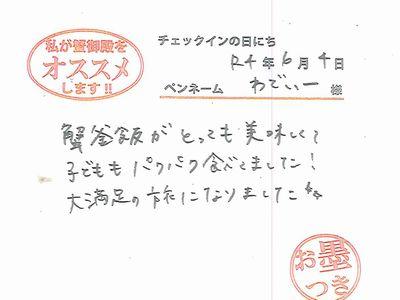 私が蟹御殿を
オススメ
します!!
チェックインの日にち
R4年6月4日
ペンネーム わでぃー 様
蟹釜飯がとっても美味しくて
子どももパクパク食べてました!
大満足の旅になりました
お墨
つき